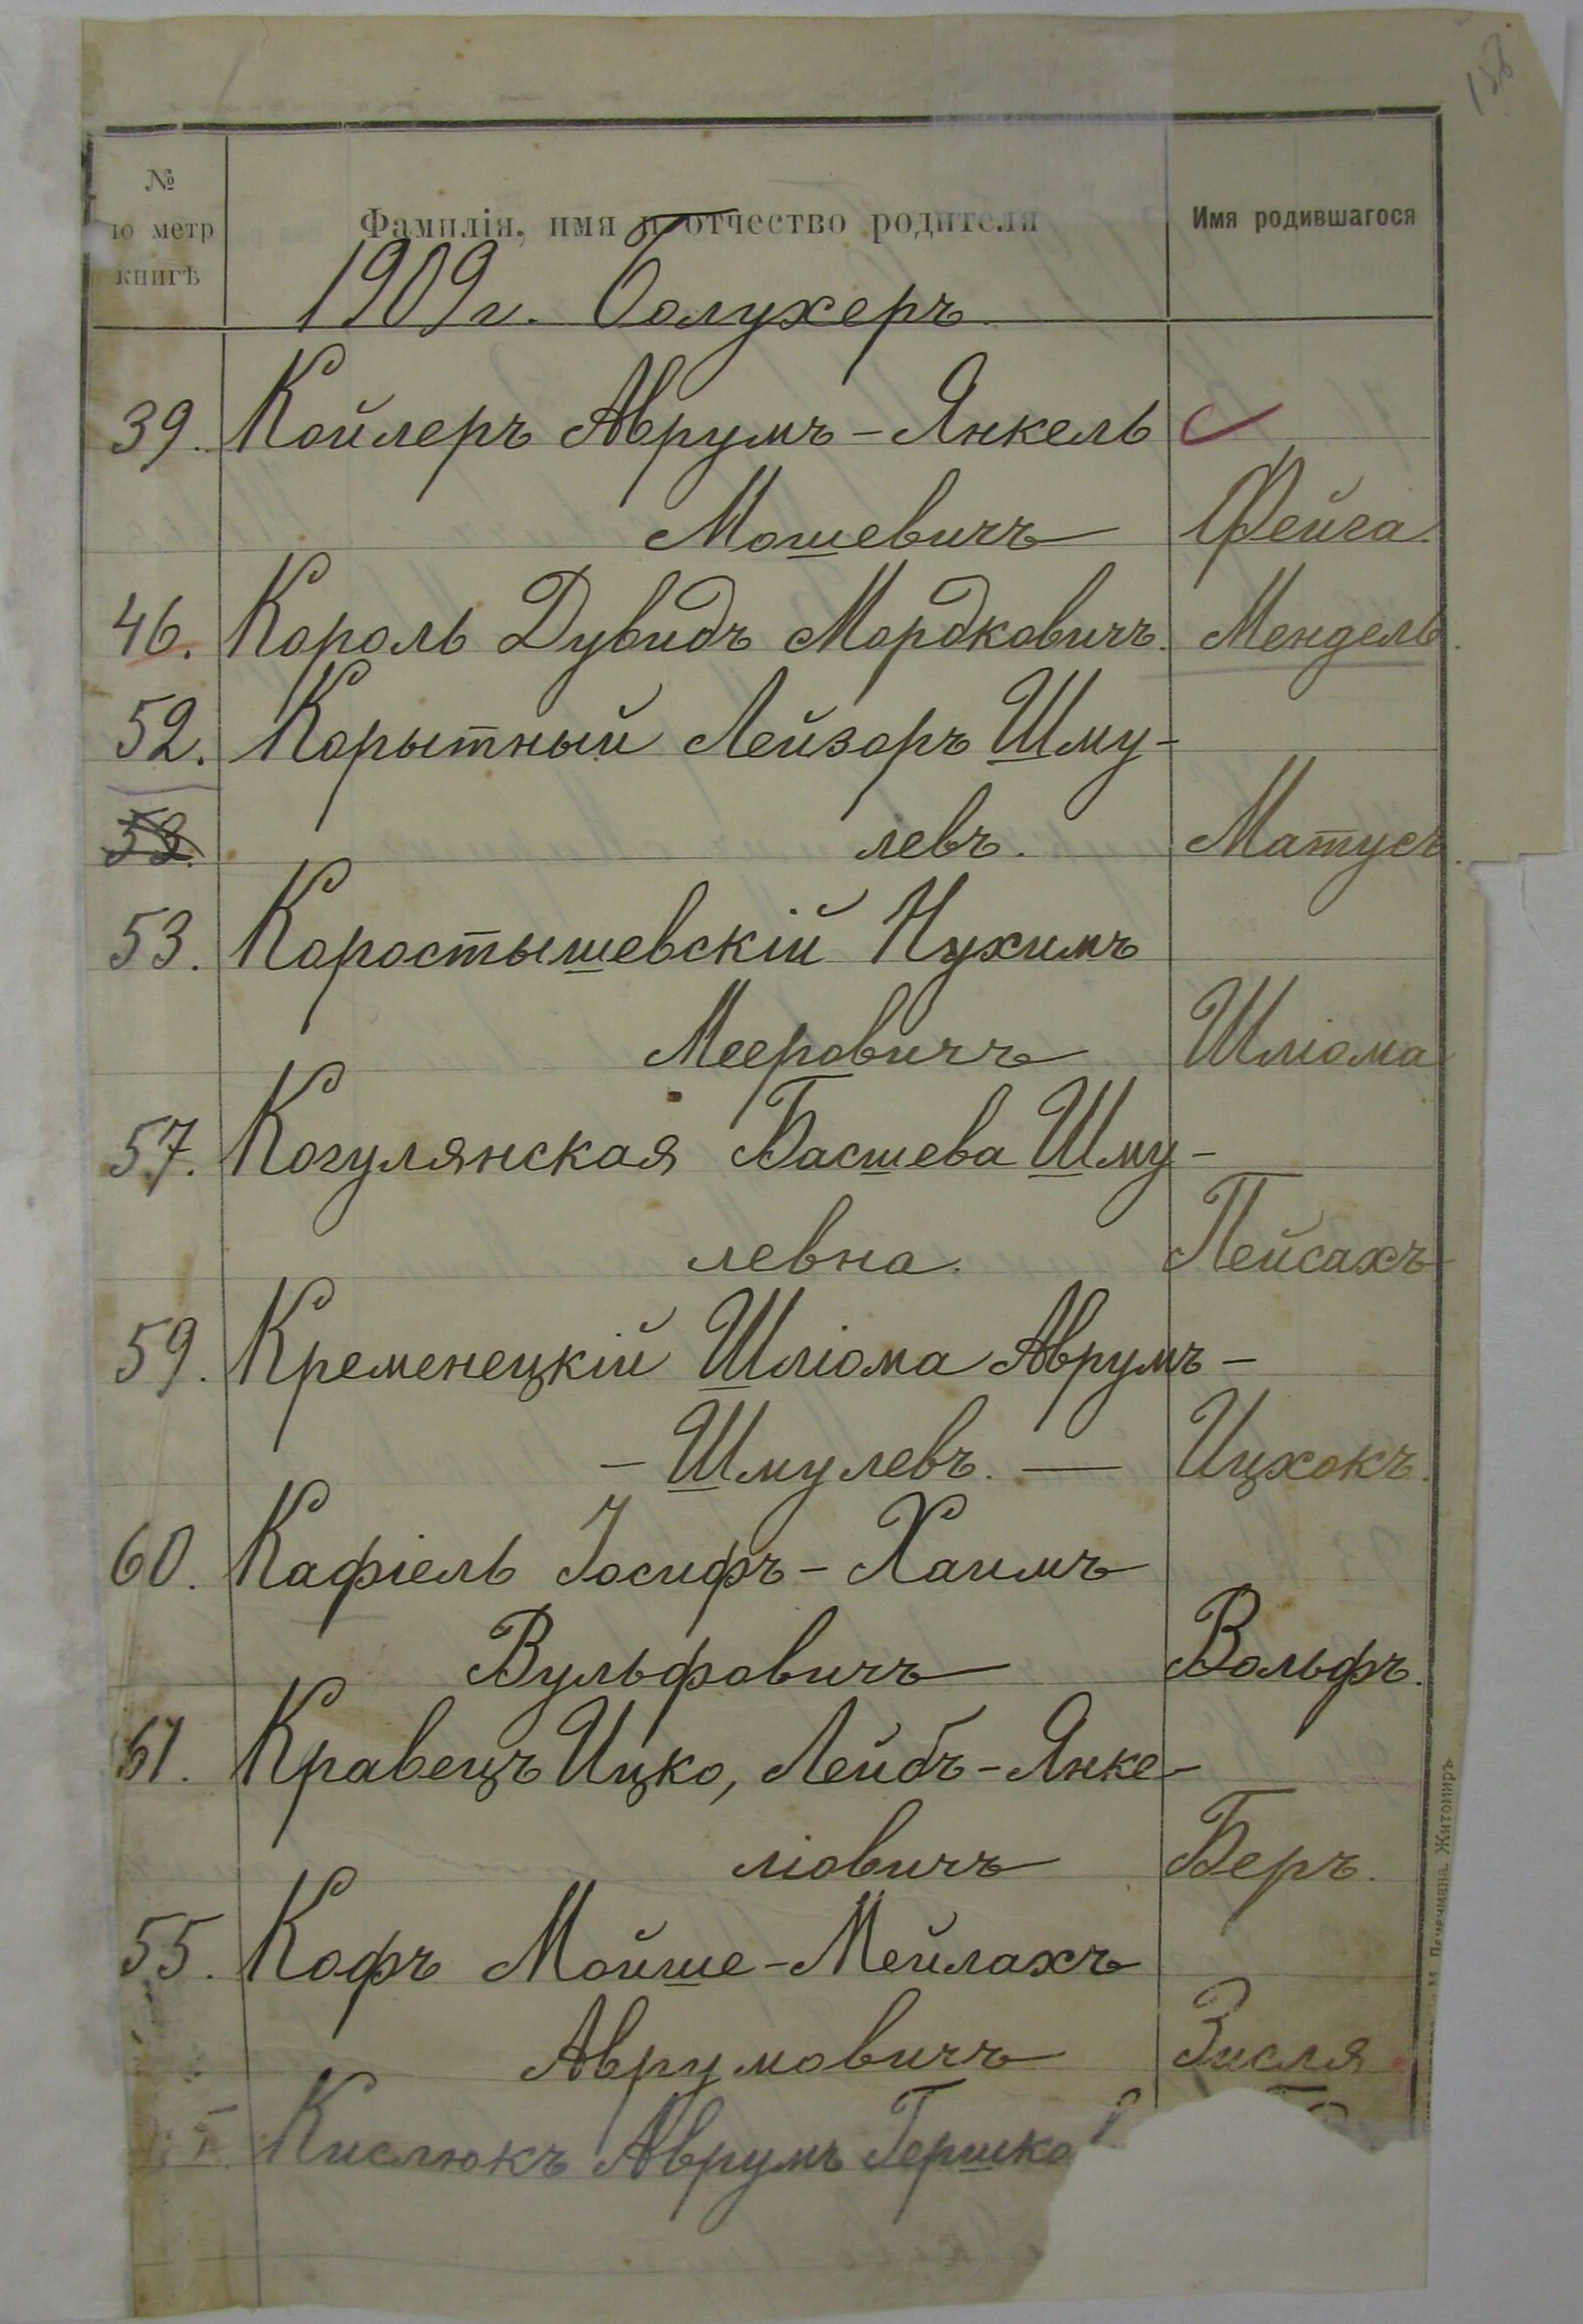 158
№
по метр
книгѣ
Фамилія, имя и отчество родителя
Имя родившагося
1909г. Болухеръ
39. Койлеръ Аврумъ-Янкель
Мошевичъ Фейга.
46. Король Дувидъ Мордковичъ. Мендель.
52. Корытный Лейзоръ Шму-
53. левъ. Матусъ.
53. Коростышевскій Нухимъ
Мееровичъ Шліома
57. Когулянская Басшева Шму-
левна. Пейсахъ
59. Кременецкій Шліома Аврумъ-
- Шмулевъ. — Ицхокъ.
60. Кафіель Іосифъ-Хаимъ
Вульфовичъ Вольфъ.
61. Кравецъ Ицко, Лейбъ-Янке-
ліовичъ Беръ.
55. Кофъ Мойше-Мейлахъ
Аврумовичъ Зисля
Кислюкъ Аврумъ Гершко
Житомиръ